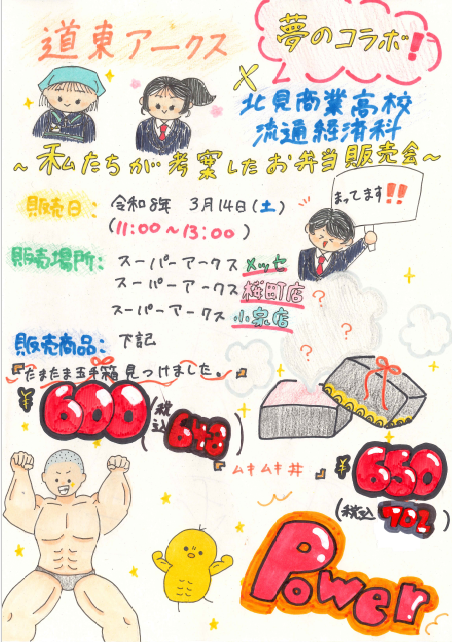 道東アークス
夢のコラボ!
×
北見商業高校
流通経済科
~私たちが考案したお弁当販売会~
販売日: 令和8年 3月14日(土)
(11:00~13:00)
まってます!!
販売場所: スーパーアークス メッセ
スーパーアークス 桜町店
スーパーアークス 小泉店
? ? ?
販売商品: 下記
『たまたま玉手箱見つけました。』
¥600(税込648)
『ムキムキ#』
¥650
(税込702)
Power